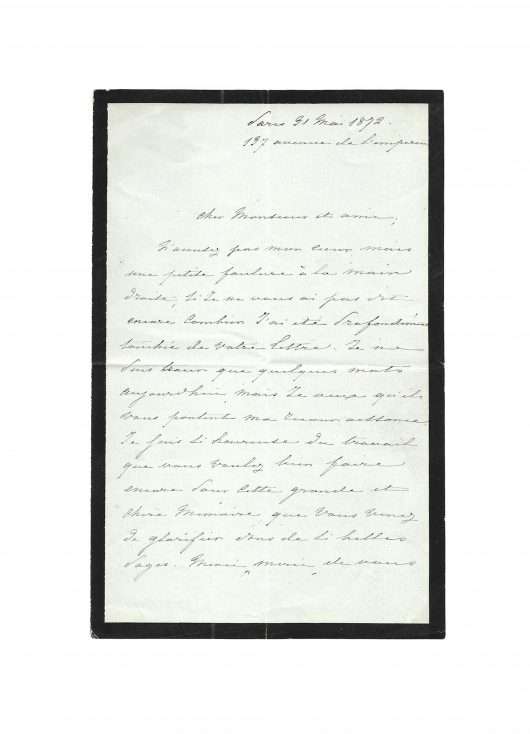 Paris 31 Mai 1872.
137 avenue de l'empereur
cher Monsieur et amie,
N'accusez pas mon cœur mais
une petite foulure à la main
droite, si Je ne vous ai pas dit
encore combien J'ai été profondément
touchée de votre lettre. Je ne
puis que quelques mots
aujourd'hui, mais Je veux qu'ils
vous portent ma reconnaissance
Je suis si heureuse du travail
que vous voulez bien faire
encore pour cette grande et
chère Mémoire que vous venez
de glorifier dans de si belles
pages. Merci, merci, de vous